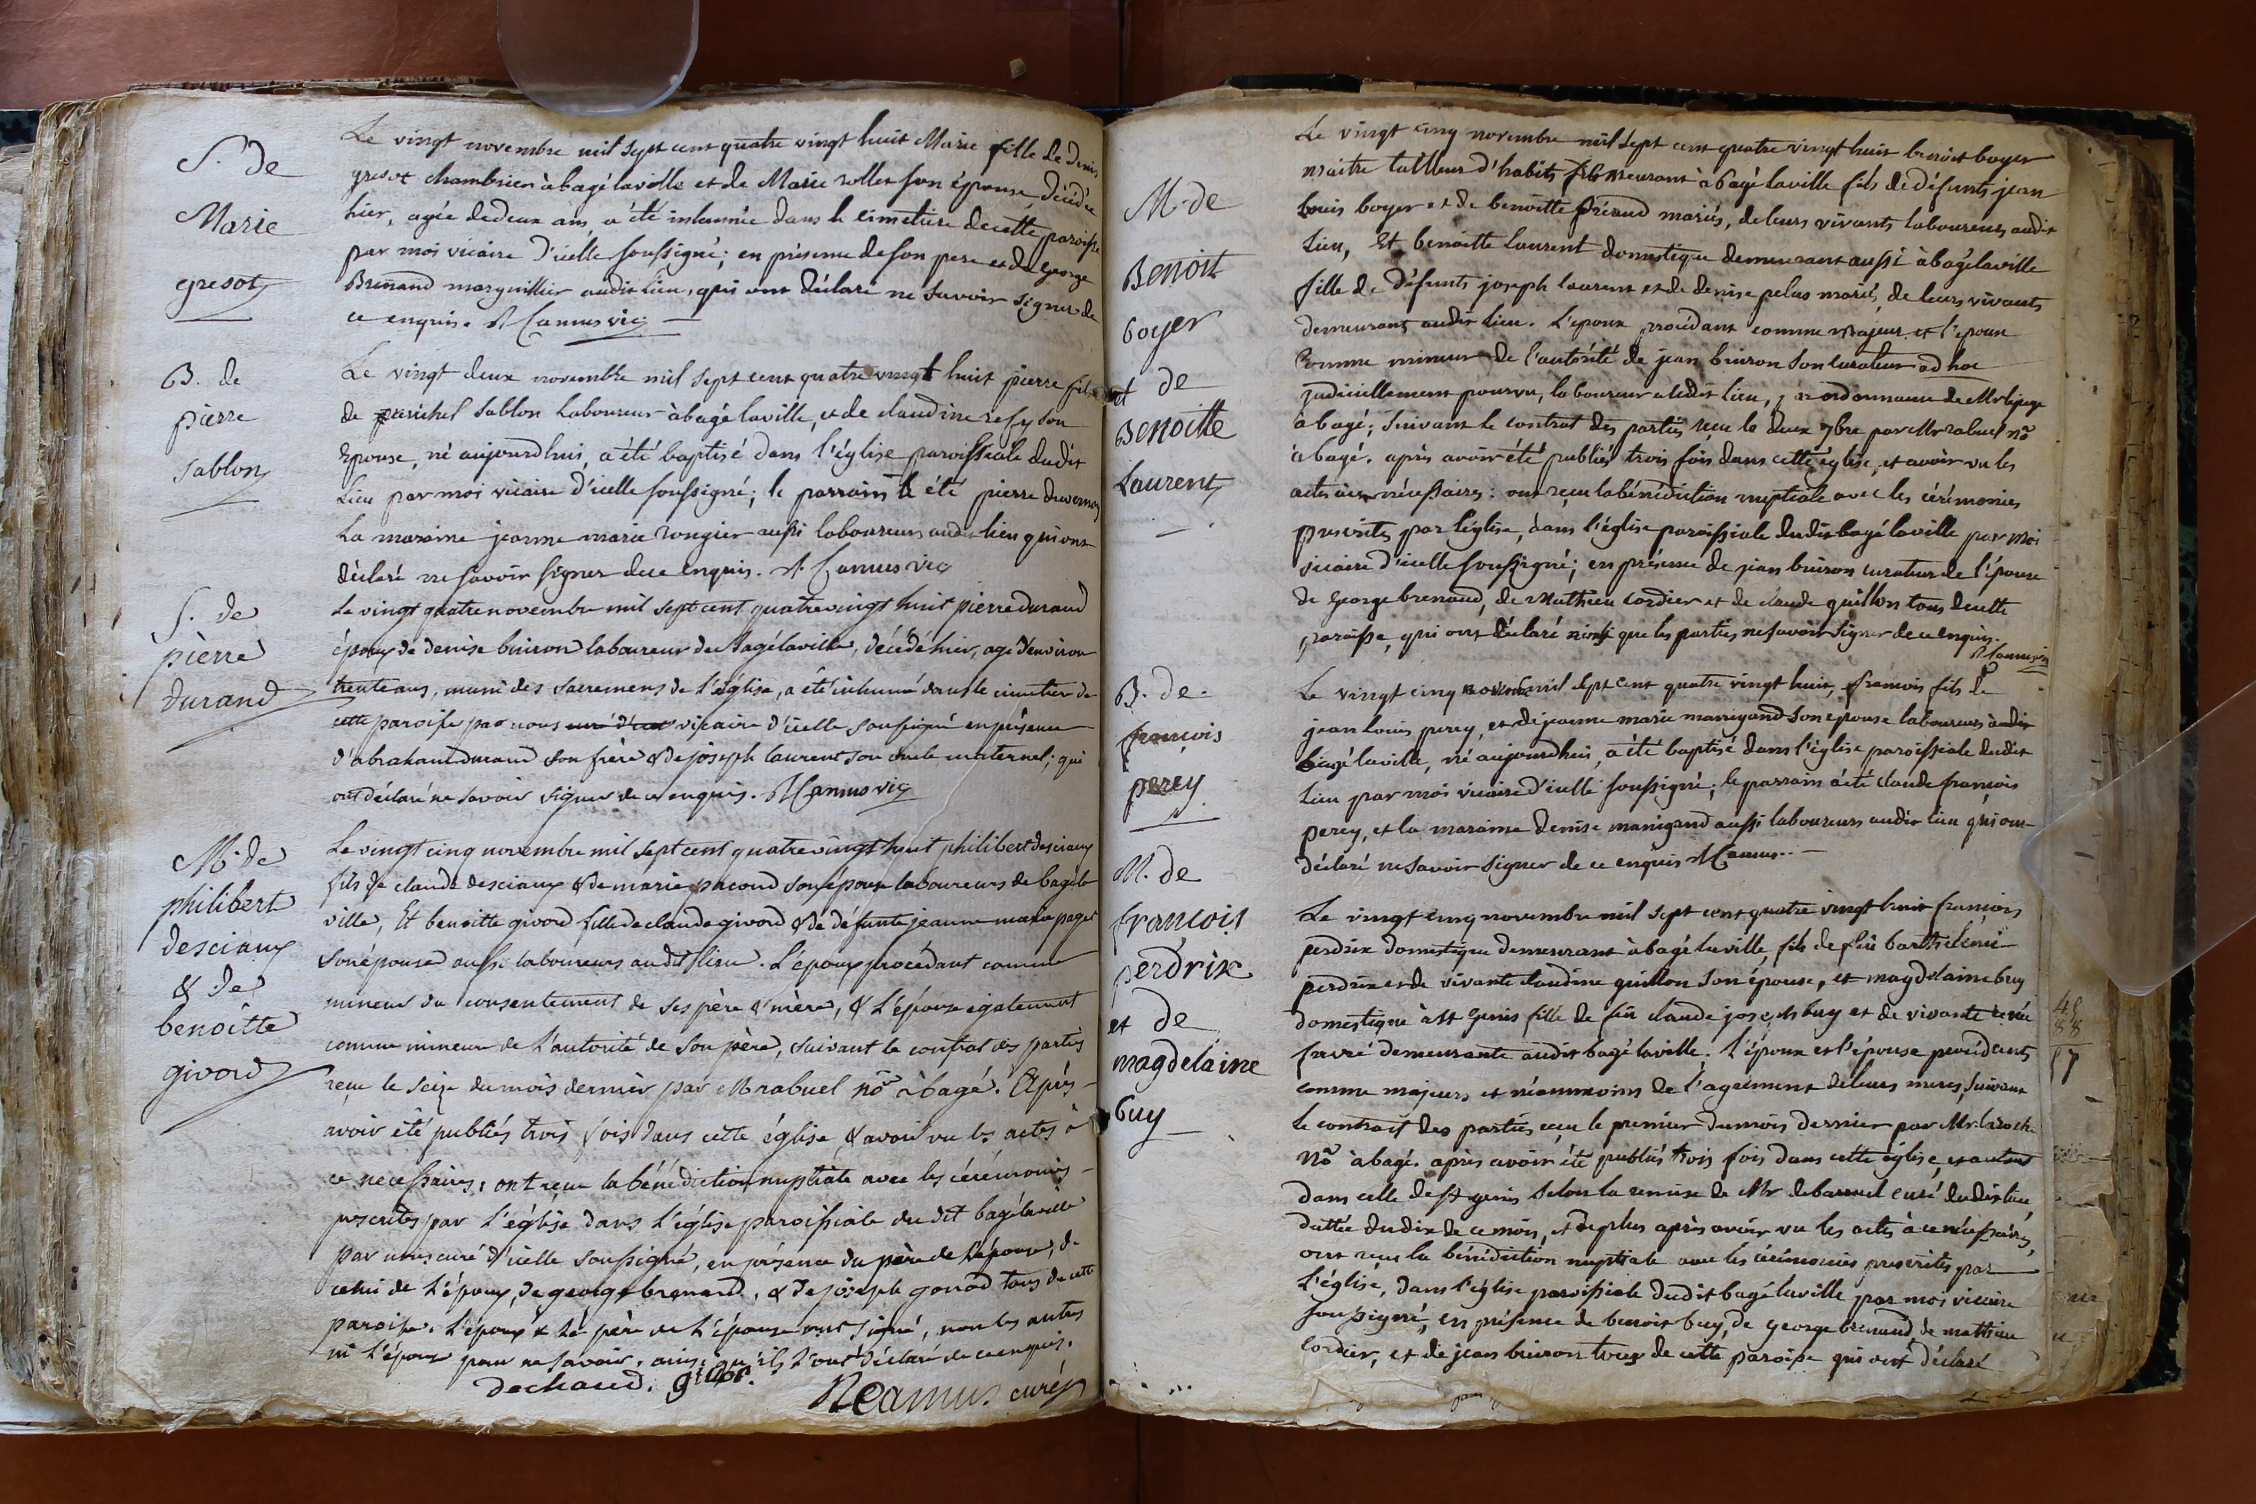 S. de
Marie
gresot
Le vingt novembre mil sept cent quatre vingt huit Marie fille de Denis
gresot chambrier à bagé laville et de Marie rollet son épouse, décédée
hier, agée de deux ans, a été inhumée dans le cimetiere de cette paroisse
par moi vicaire d'icelle soussigné; en présence de son pere et de George
Brenand marguillier audit lieu, qui ont déclaré ne savoir signer de
ce enquis. N Camus vic
B. de
pierre
sablon
Le vingt deux novembre mil sept cent quatre vingt huit pierre fils
de michel sablon laboureur à bagé laville, et de claudine refy son
Epouse, né aujourdhui, a été baptisé dans l'église paroissiale dudit
Lieu par moi vicaire d'icelle soussigné; le parrain a été pierre duvernay
La maraine jeanne marie rongier aussi laboureurs audit lieu qui ont
déclaré ne savoir signer de ce enquis. N Camus vic
S. de
pièrre
durand
Le vingt quatre novembre mil sept cent quatre vingt huit pierre durand
époux de denise buiron laboureur de Bagélaville, décédé hier, agé d'environ
trente ans, muni des sacremens de l'église, a été inhumé dans le cimetier de
cette paroisse par nous curé d'icel vicaire d'icelle soussigné en présence
d'abraham durand son frère & de joseph laurent son oncle maternel, qui
ont déclaré ne savoir signer de ce enquis. N Camus vic
M. de
philibert
desciaux
& de
benoîtte
givord
Le vingt cinq novembre mil sept cent quatre vingt huit philibert desciaux
fils de claude desciaux & de marie pacoud son épouse laboureurs de bagé la
ville, Et benoitte givord fille de claude givord & de défunte jeanne marie paget
son épouse aussi laboureurs audit lieu. L'epoux procédant comme
mineur du consentement de ses père & mère, & L'épouse également
comme mineure de l'autorité de son père, suivant le contrat des partiès
reçu le seize du mois dernier par Mr rabuel no.re à bagé. Après
avoir été publiés trois fois dans cette église & avoir vu les actes à
ce nécessaires, ont reçu la bénédiction nuptiale avec les cérémonies
prescrites par L'église dans L'église paroissiale du dit bagélaville
par nous curé d'icelle soussigné, en présence du père de L'épouse, de
celui de L'époux, de george brenand, & de joseph gonod tous de cette
paroisse. L'époux & Le père de L'épouse ont signé, non les autres
ni L'épouse pour ne savoir, ainsi qu'ils l'ont déclaré de ce enquis.
dechaud. givor.
N Camus curé
M. de
Benoit
boyer
et de
Benoitte
Laurent
Le vingt cinq novembre mil sept cent quatre vingt huit benoit boyer
maitre tailleur d'habits demeurant à bagé laville fils de défunts jean
louis boyer et de benoitte mariés, de leurs vivants laboureurs audit
Lieu, Et benoitte laurent domestique demeurant aussi à bagé laville
fille de défunts joseph laurent et de denise pelus mariés, de leurs vivants
demeurants audit lieu. L'epoux procédant comme majeur et l'epouse
Comme mineure de l'autorité de jean buiron son curateur ad hoc
judiciellement pourvu, laboureur audit lieu, ordonnance de Mr le juge
à bagé; suivant le contrat des parties reçu le deux 7bre par Mr rabuel no.re
à bagé. après avoir été publiés trois fois dans cette église, et avoir vu les
actes à ce nécessaires: ont reçu la bénédiction nuptiale avec les cérémonies
prescrites par l'église, dans l'église paroissiale dudit bagé laville par moi
vicaire d'icelle soussigné; en présence de jean buiron curateur de l'épouse
de George brenand, de Mathieu cordier et de claude guillon tous de cette
paroisse, qui ont déclaré ainsi que les parties ne savoir signer de ce enquis.
N Camus vic
B. de
françois
perey
Le vingt cinq novembre mil sept cent quatre vingt huit, françois fils de
jean louis perey, et de jeanne marie manigand son epouse laboureurs audit
bagé laville, né aujourdhui, a été baptisé dans l'église paroissiale dudit
Lieu par moi vicaire d'icelle soussigné; le parrain a été claude françois
perey, et la maraine denise manigand aussi laboureurs audit lieu qui ont
déclaré ne savoir signer de ce enquis N Camus
M. de
françois
perdrix
et de
magdelaine
buy
Le vingt cinq novembre mil sept cent quatre vingt huit françois
perdrix domestique demeurant à bagé laville, fils de feu barthelemi
perdrix et de vivante claudine guillon son épouse, et magdelaine buy
domestique à St Genis fille de feu claude joseph buy et de vivante renée
favre demeurante audit bagé laville. L'époux et l'épouse procédants
comme majeurs et néanmoins de l'agrement de leurs meres, suivant
Le contrait des parties reçu le premier du mois dernier par Mr
no.re à bagé. après avoir été publiés trois fois dans cette église, et autant
dans celle de St genis selon la remise de Mr debarruel curé dudit lieu
dattée du dix de ce mois, et de plus après avoir vu les actes à ce nécessaires,
ont reçu la bénédiction nuptiale avec les cérémonies prescrites par
L'église, dans l'église paroissiale dudit bagé laville par moi vicaire
soussigné, en présence de benoit buy, de George brenand, de mathieu
cordier, et de jean buiron tous de cette paroisse qui ont déclaré